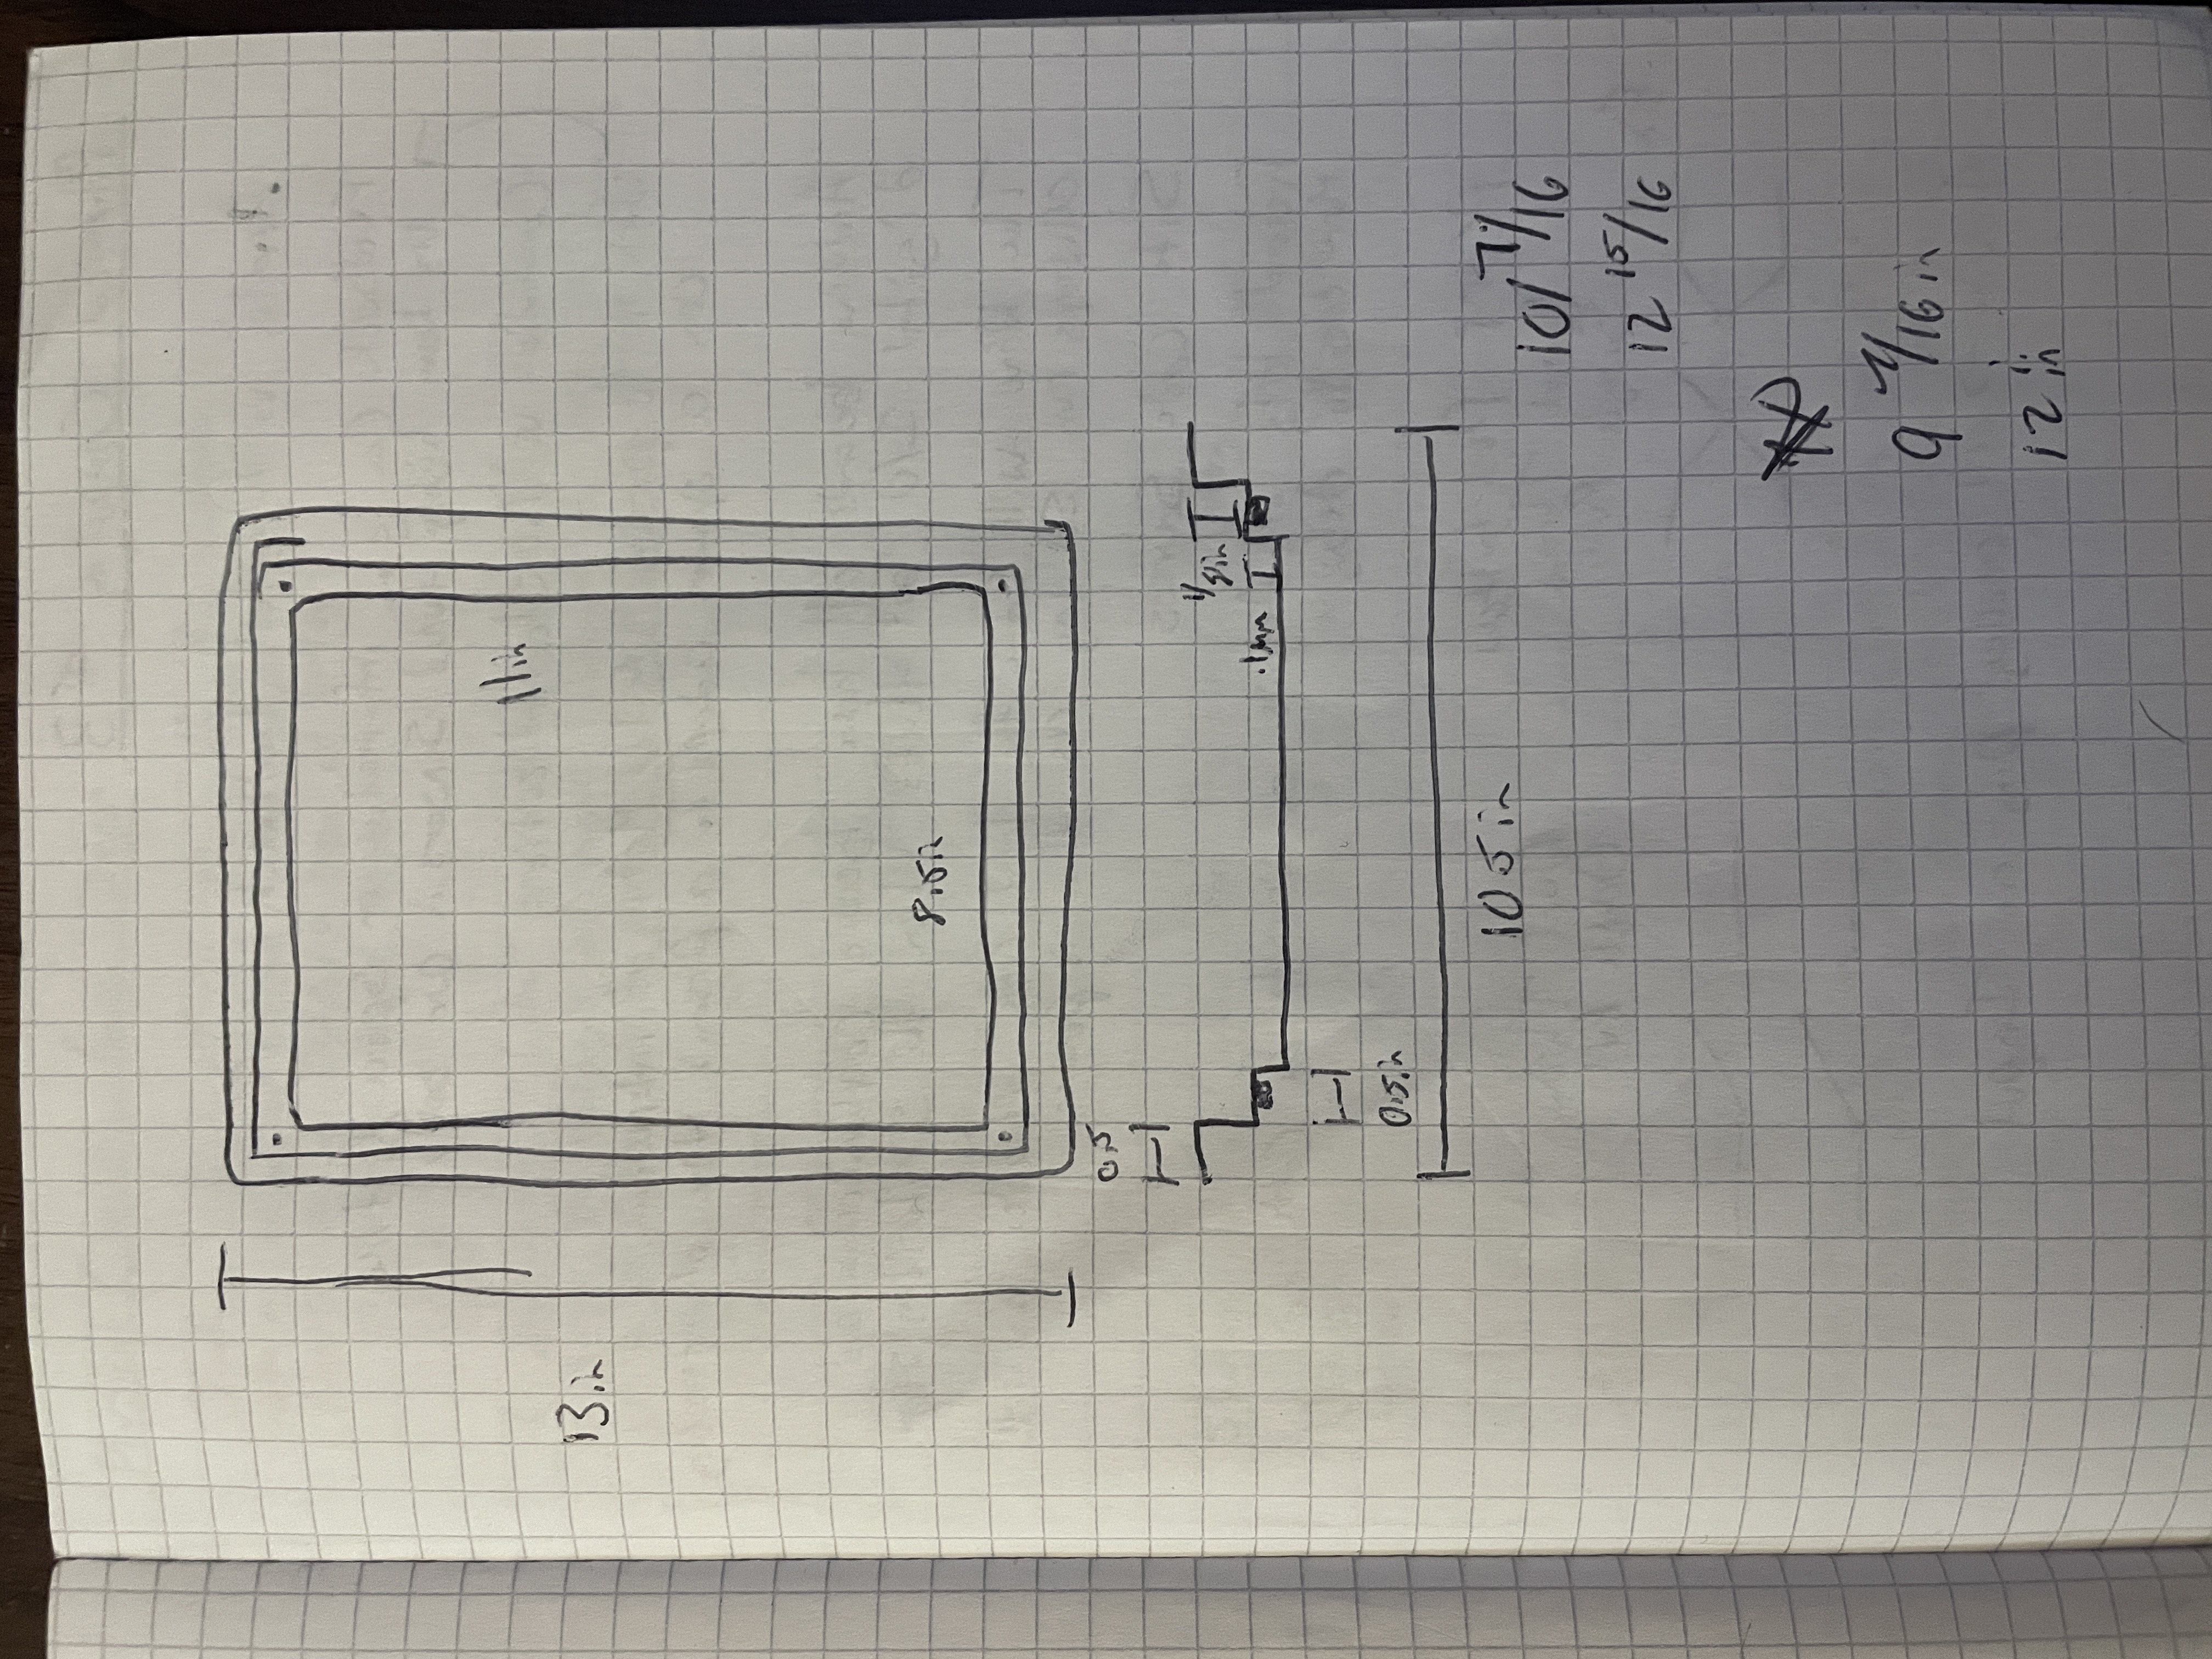 13in
11in
8.5in
0.5
1/8in
.1mm
0.5in
10 5 in
10/ 7/16
12 15/16
in
12 in